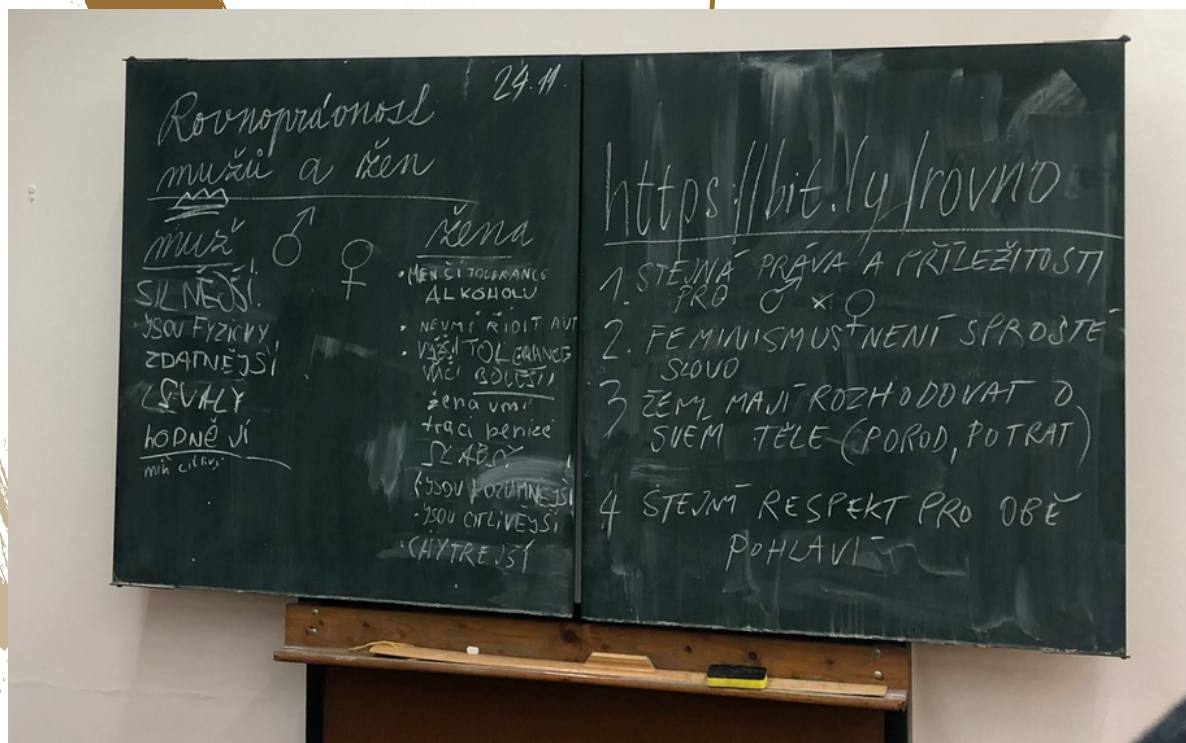 24.11.
Rovnoprávnost
mužů a žen
muž
SILNĚJŠÍ.
JSOU FYZICKY
ZDATNĚJŠÍ
SVALY
hODNĚ JÍ
žena
• MENŠÍ TOLERANCE
ALKOHOLU
• NEUMÍ ŘÍDIT AUT
• VYŠŠÍ TOLERANCE
VŮČI BOLESTI
žena umí
traci penize
• JSOU ROZUMNĚJŠÍ
• JSOU CITLIVĚJŠÍ
• CHYTŘEJŠÍ
https://bit.ly/rovno
1. STEJNÁ PRÁVA A PŘÍLEŽITOSTI
PRO ♂ x ♀
2. FEMINISMUS NENÍ SPROSTÉ
SLOVO
3 ŽENY MAJÍ ROZHODOVAT O
SVÉM TĚLE (POROD, POTRAT)
4 STEJNÝ RESPEKT PRO OBĚ
POHLAVÍ